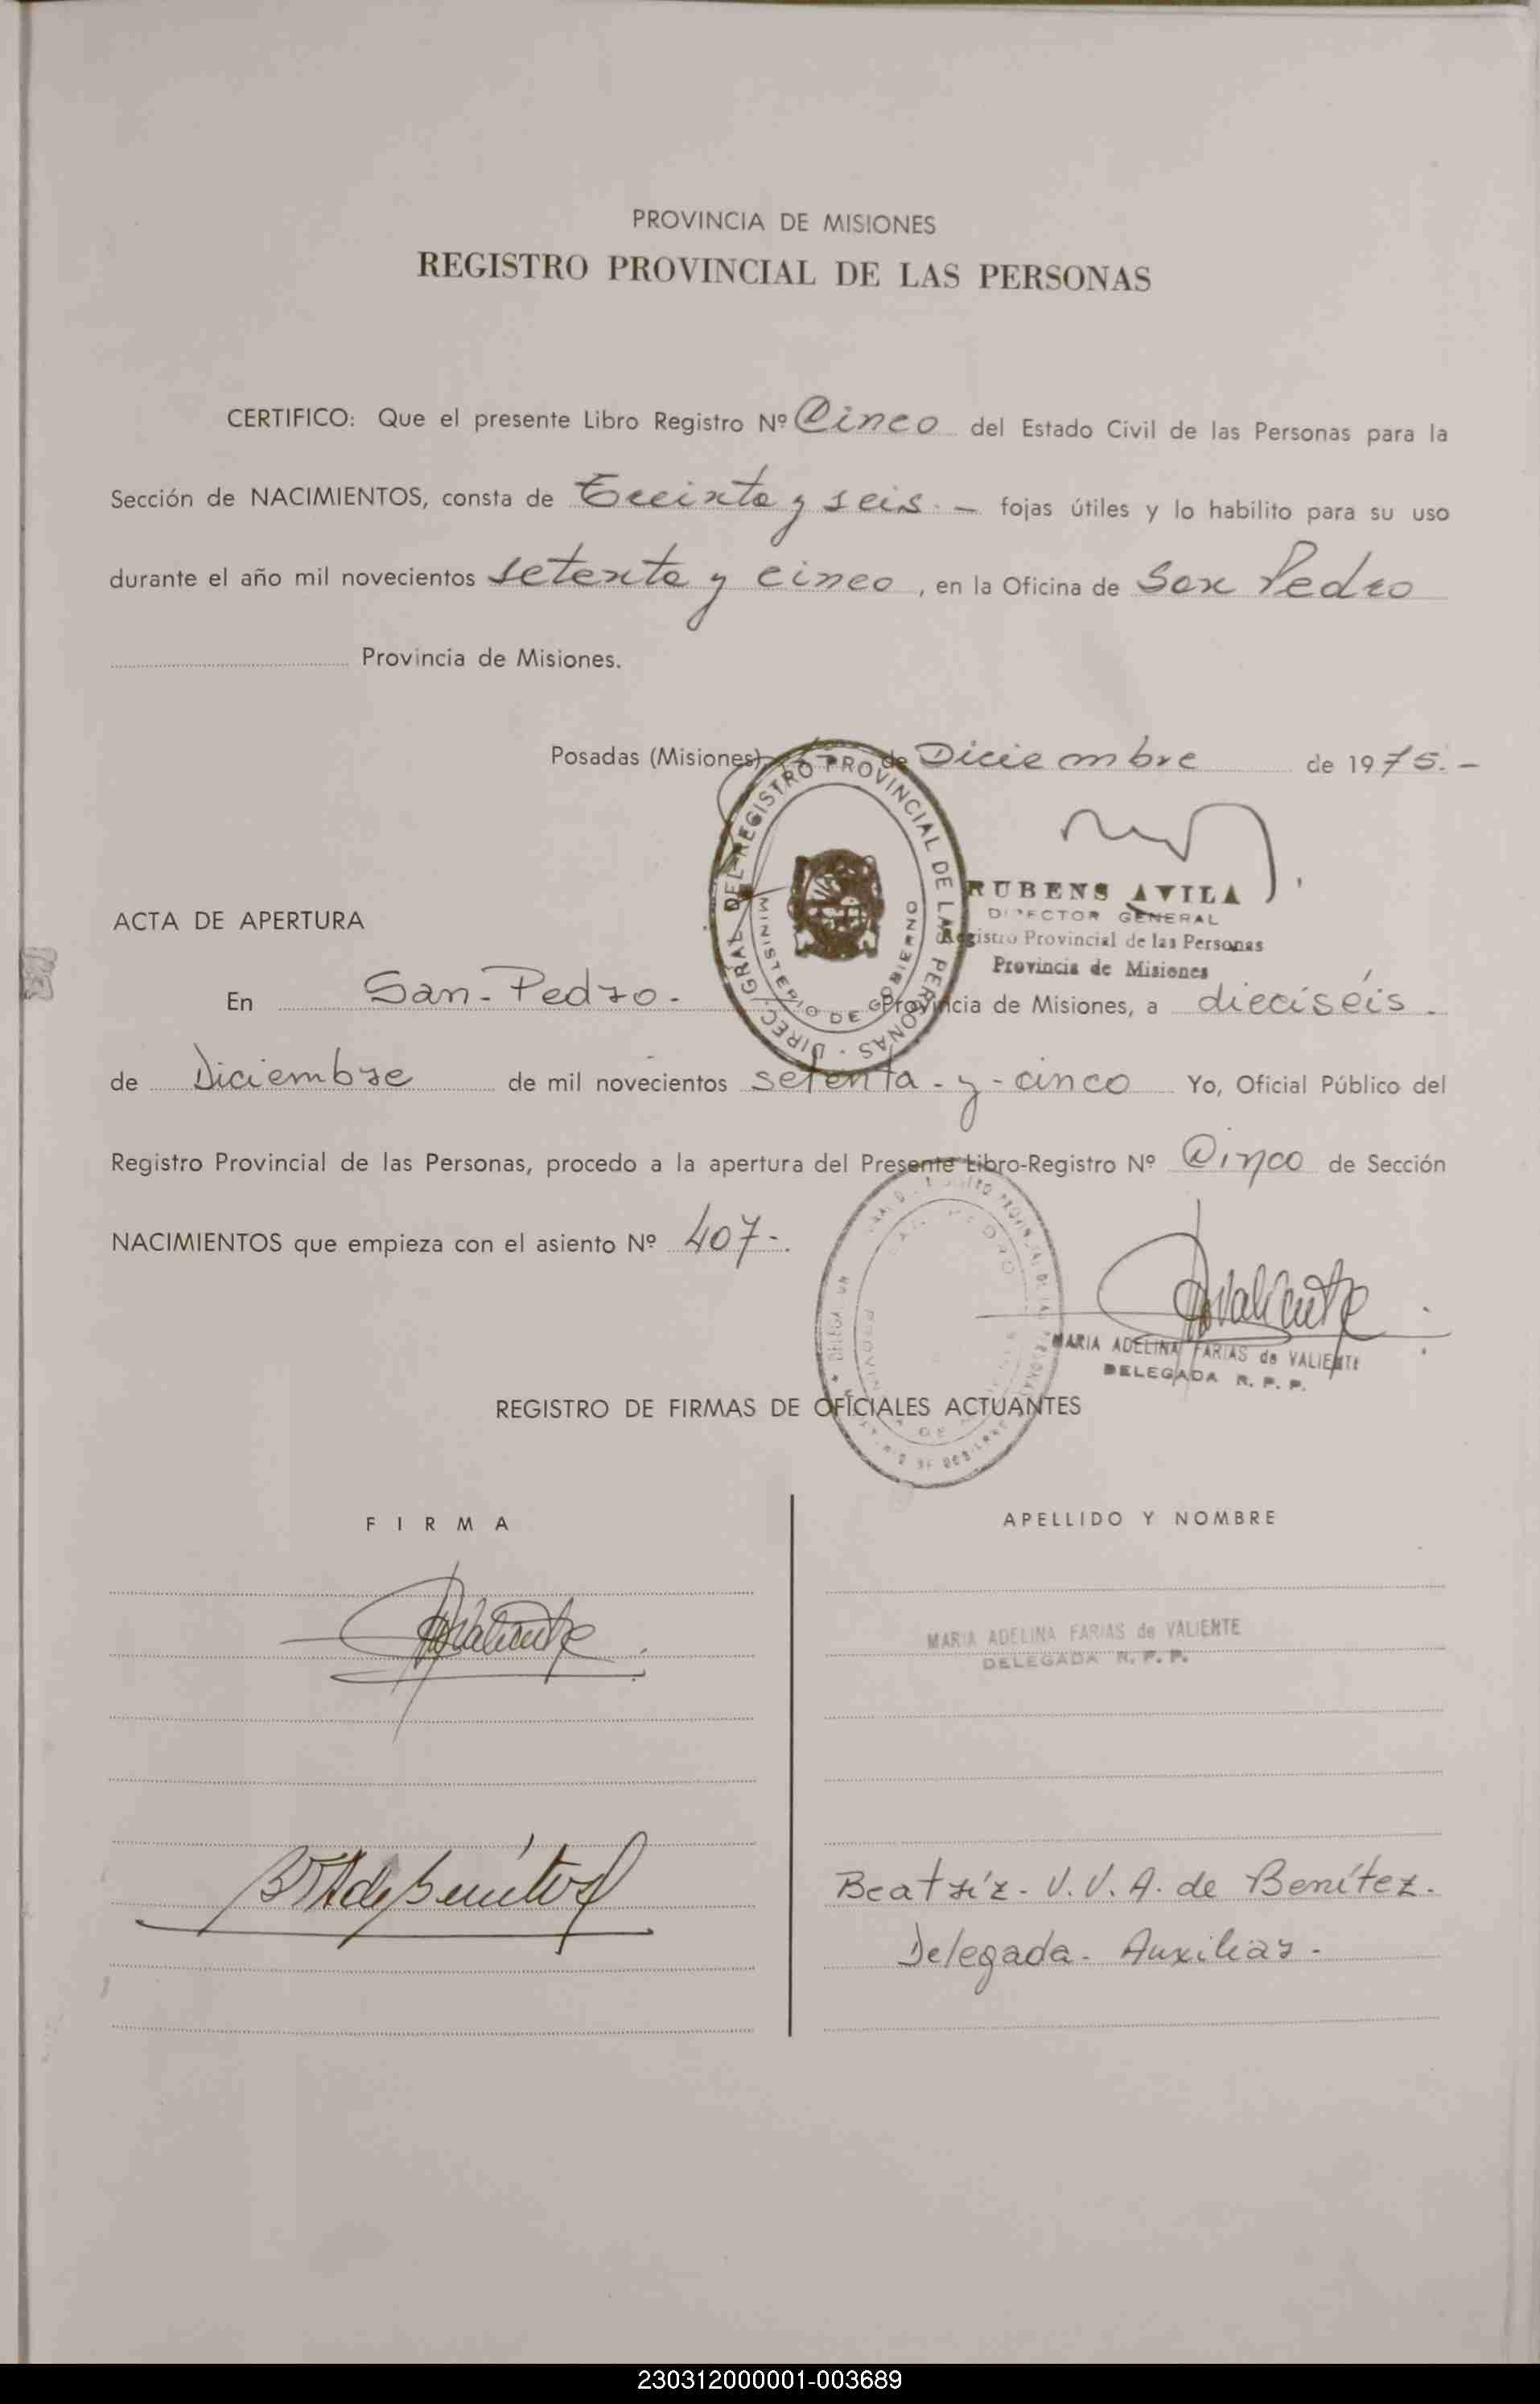 PROVINCIA DE MISIONES
REGISTRO PROVINCIAL DE LAS PERSONAS
CERTIFICO: Que el presente Libro Registro Nº Cinco del Estado Civil de las Personas para la
Sección de NACIMIENTOS, consta de Treinta y seis. — fojas útiles y lo habilito para su uso
durante el año mil novecientos setenta y cinco, en la Oficina de San Pedro
Provincia de Misiones.
Posadas (Misiones), de Diciembre de 1975. -
DIREC. GRAL. DEL REGISTRO PROVINCIAL DE LAS PERSONAS
MINISTERIO DE GOBIERNO
RUBENS AVILA
DIRECTOR GENERAL
Registro Provincial de las Personas
Provincia de Misiones
ACTA DE APERTURA
En San-Pedro. Provincia de Misiones, a dieciséis.
de Diciembre de mil novecientos setenta-y-cinco Yo, Oficial Público del
Registro Provincial de las Personas, procedo a la apertura del Presente Libro-Registro Nº Cinco de Sección
NACIMIENTOS que empieza con el asiento Nº 407-.
MARIA ADELINA FARIAS de VALIENTE
DELEGADA R. P. P.
REGISTRO DE FIRMAS DE OFICIALES ACTUANTES
FIRMA
APELLIDO Y NOMBRE
MARIA ADELINA FARIAS de VALIENTE
DELEGADA R. P. P.
Beatríz. V. V. A. de Benítez.
Delegada. Auxiliar.
230312000001-003689